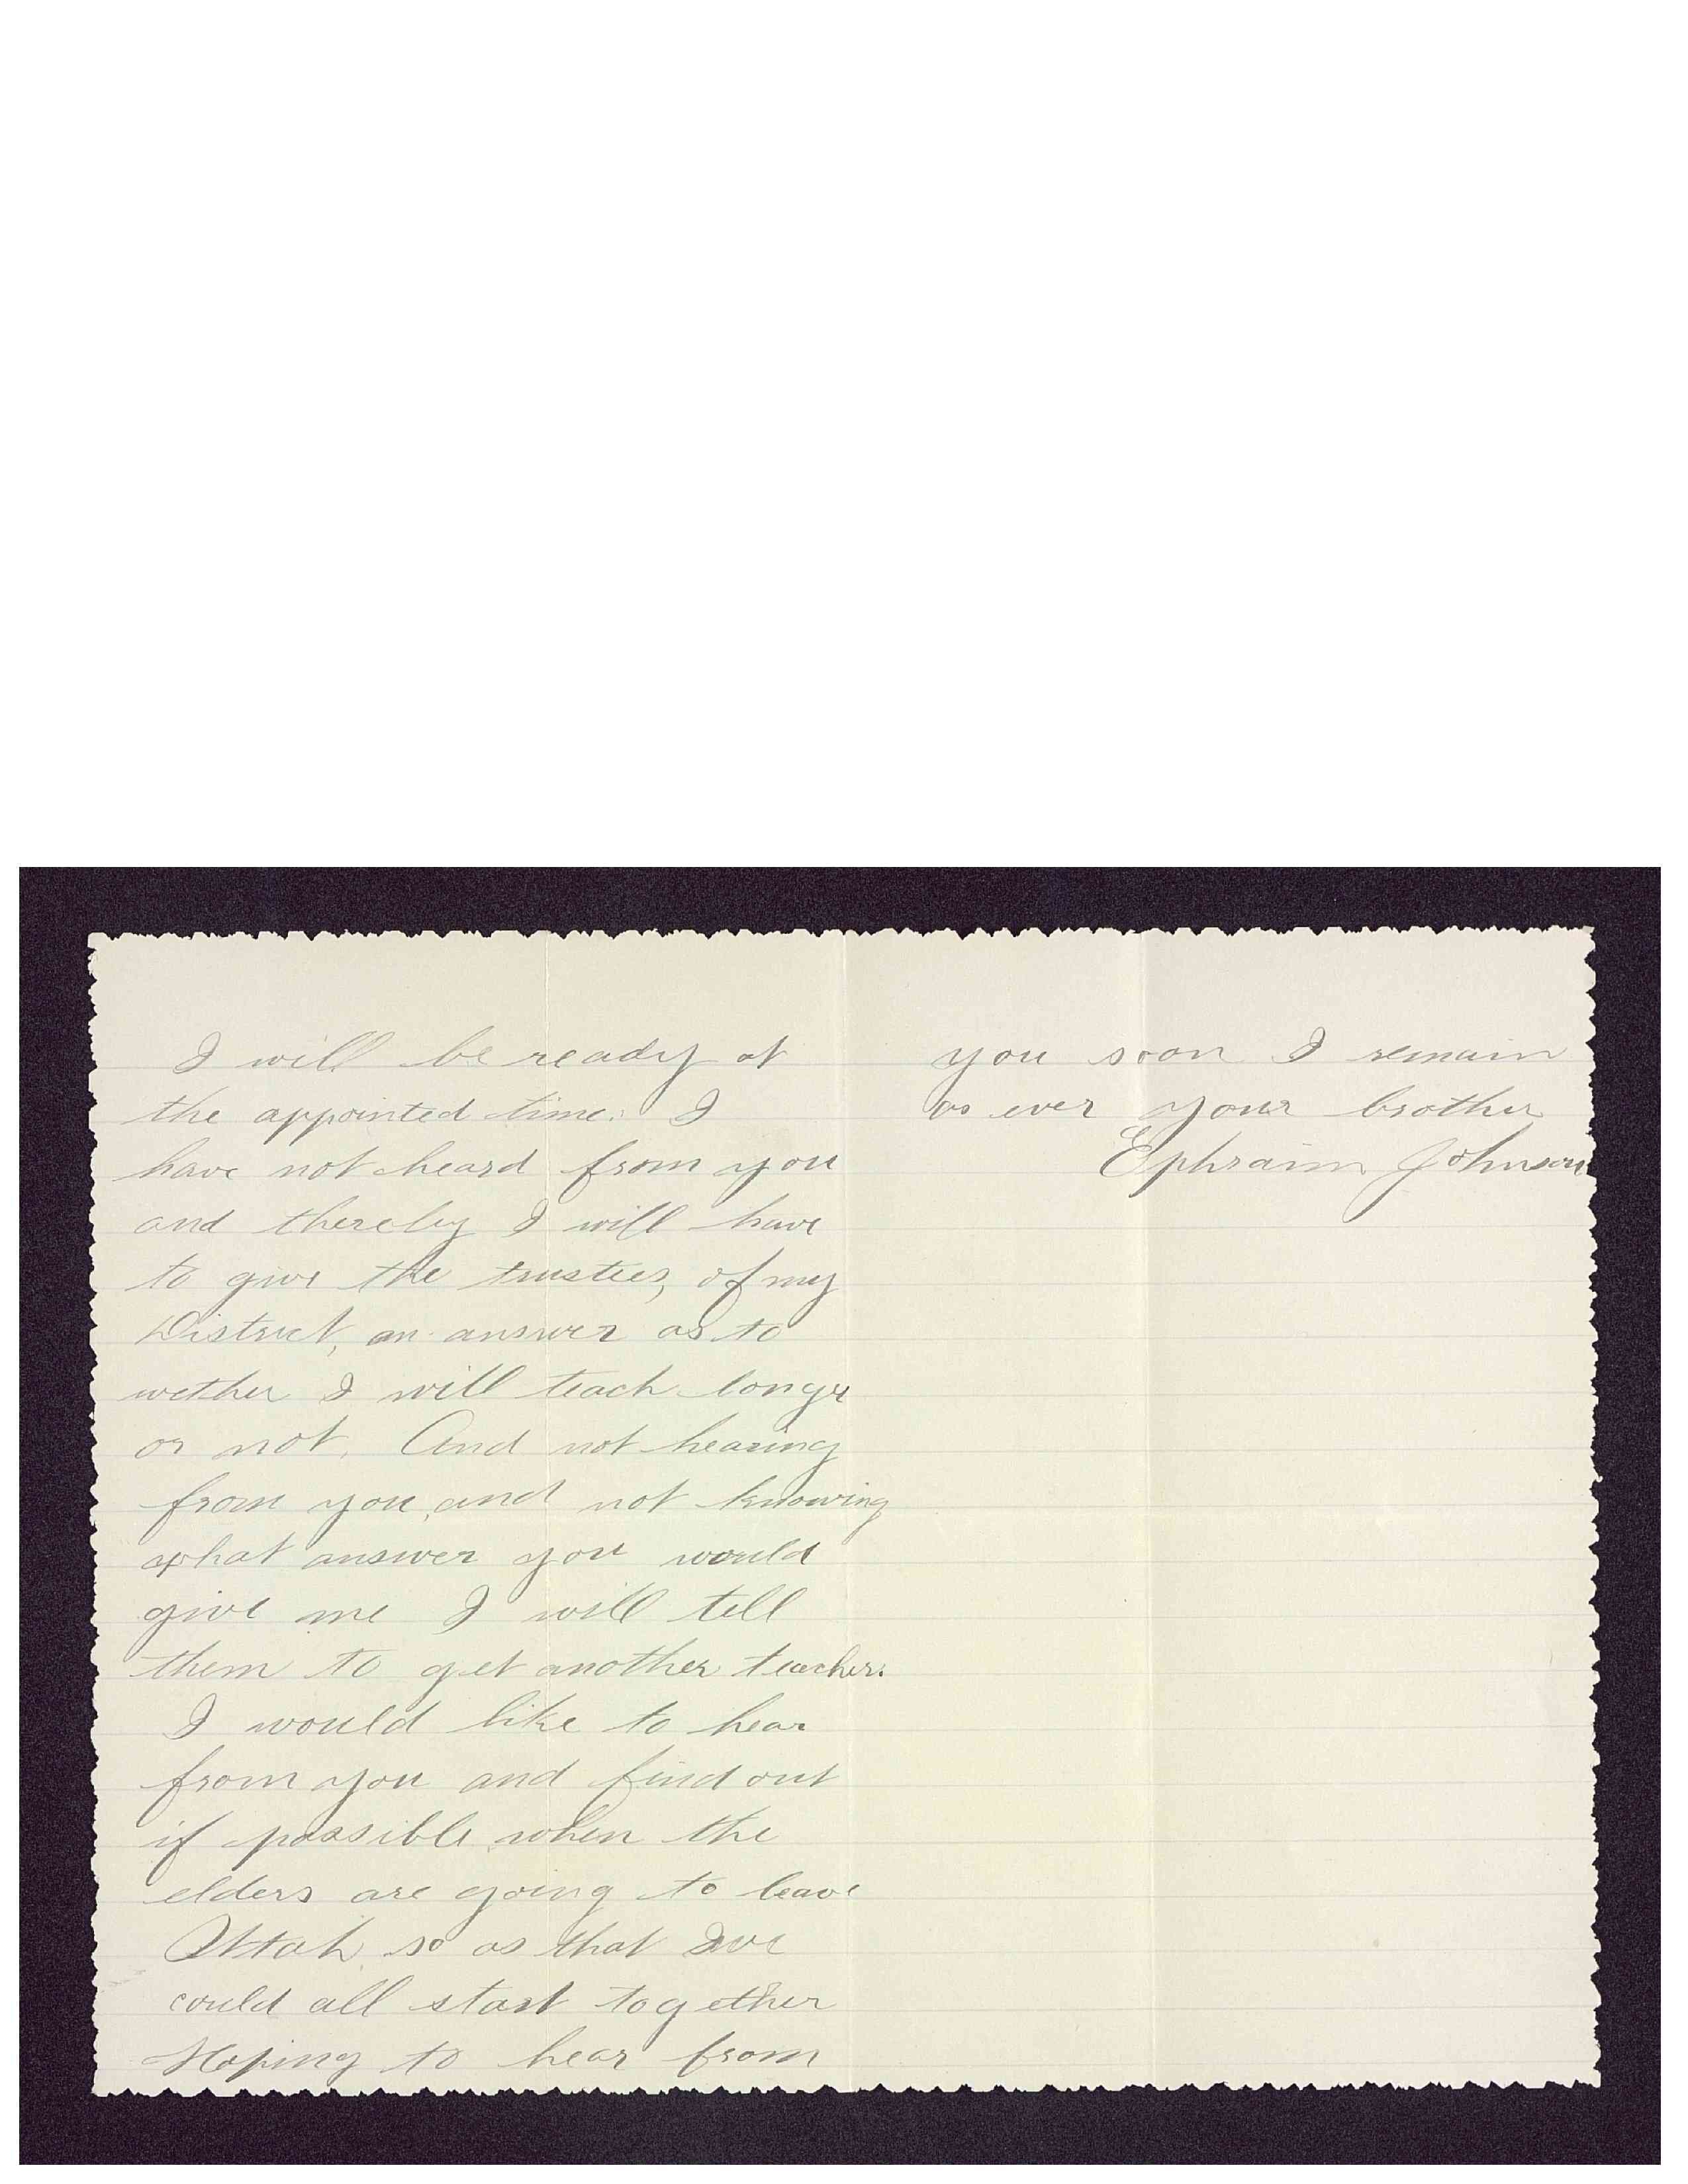 I will be ready at
the appointed time. I
have not heard from you
and thereby I will have
to give the trustees, of my
District, an answer as to
wether I will teach longer
or not. And not hearing
from you, and not knowing
what answer you would
give me I will tell
them to get another teacher.
I would like to hear
from you and find out
if possible when the
elders are going to leave
Uttah, so as that we
could all start together
Hoping to hear from
you soon I remain
as ever your brother
Ephraim Johnson